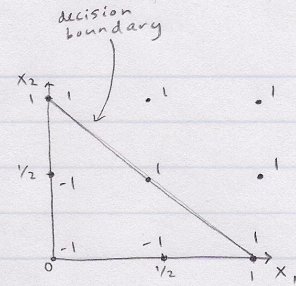 decision
boundary
X2
1 1 1 1
1/2 -1 1 1
-1 -1 1
0 1/2 1 X1